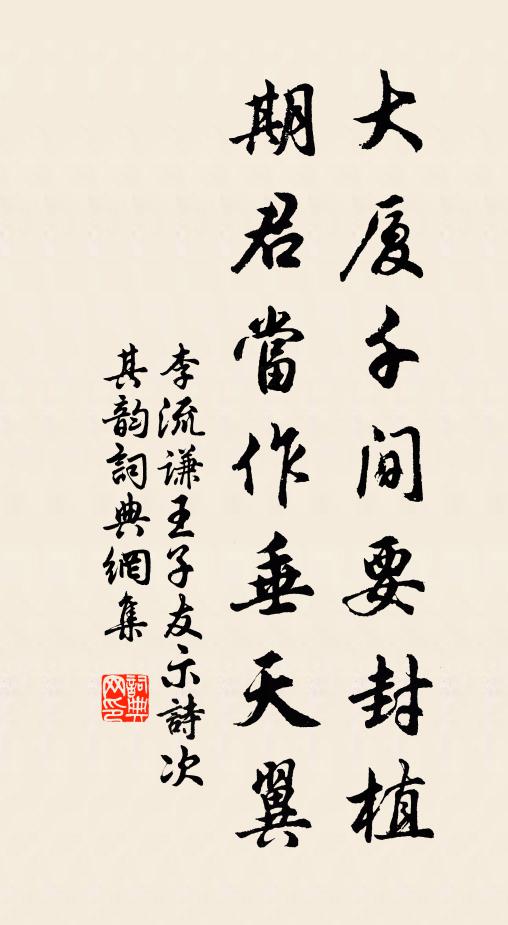 大厦千间要封植
期君當作垂天翼
李流谦王子友示詩次
其韵詞典網集
詞典网印